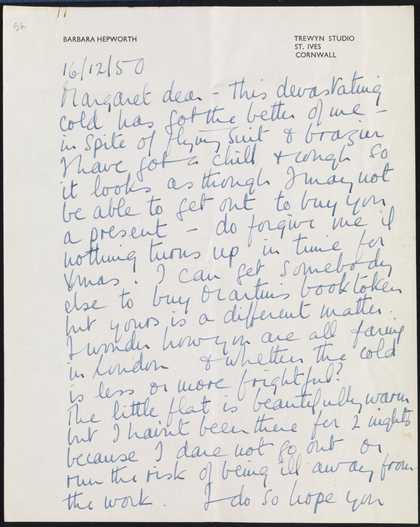 BARBARA HEPWORTH
TREWYN STUDIO
ST. IVES
CORNWALL
16/12/50
Margaret dear – this devastating
cold has got the better of me –
in spite of flying suit & brazier
I have got a chill & cough so
it looks as though I may not
be able to get out to buy you
a present – do forgive me if
nothing turns up in time for
Xmas. I can get somebody
else to buy Martins book token
but yours is a different matter.
I wonder how you are all faring
in London & whether the cold
is less or more frightful?
The little flat is beautifully warm
but I haint been there for 2 nights
because I dare not go out or
run the risk of being ill away from
the work. I do so hope you